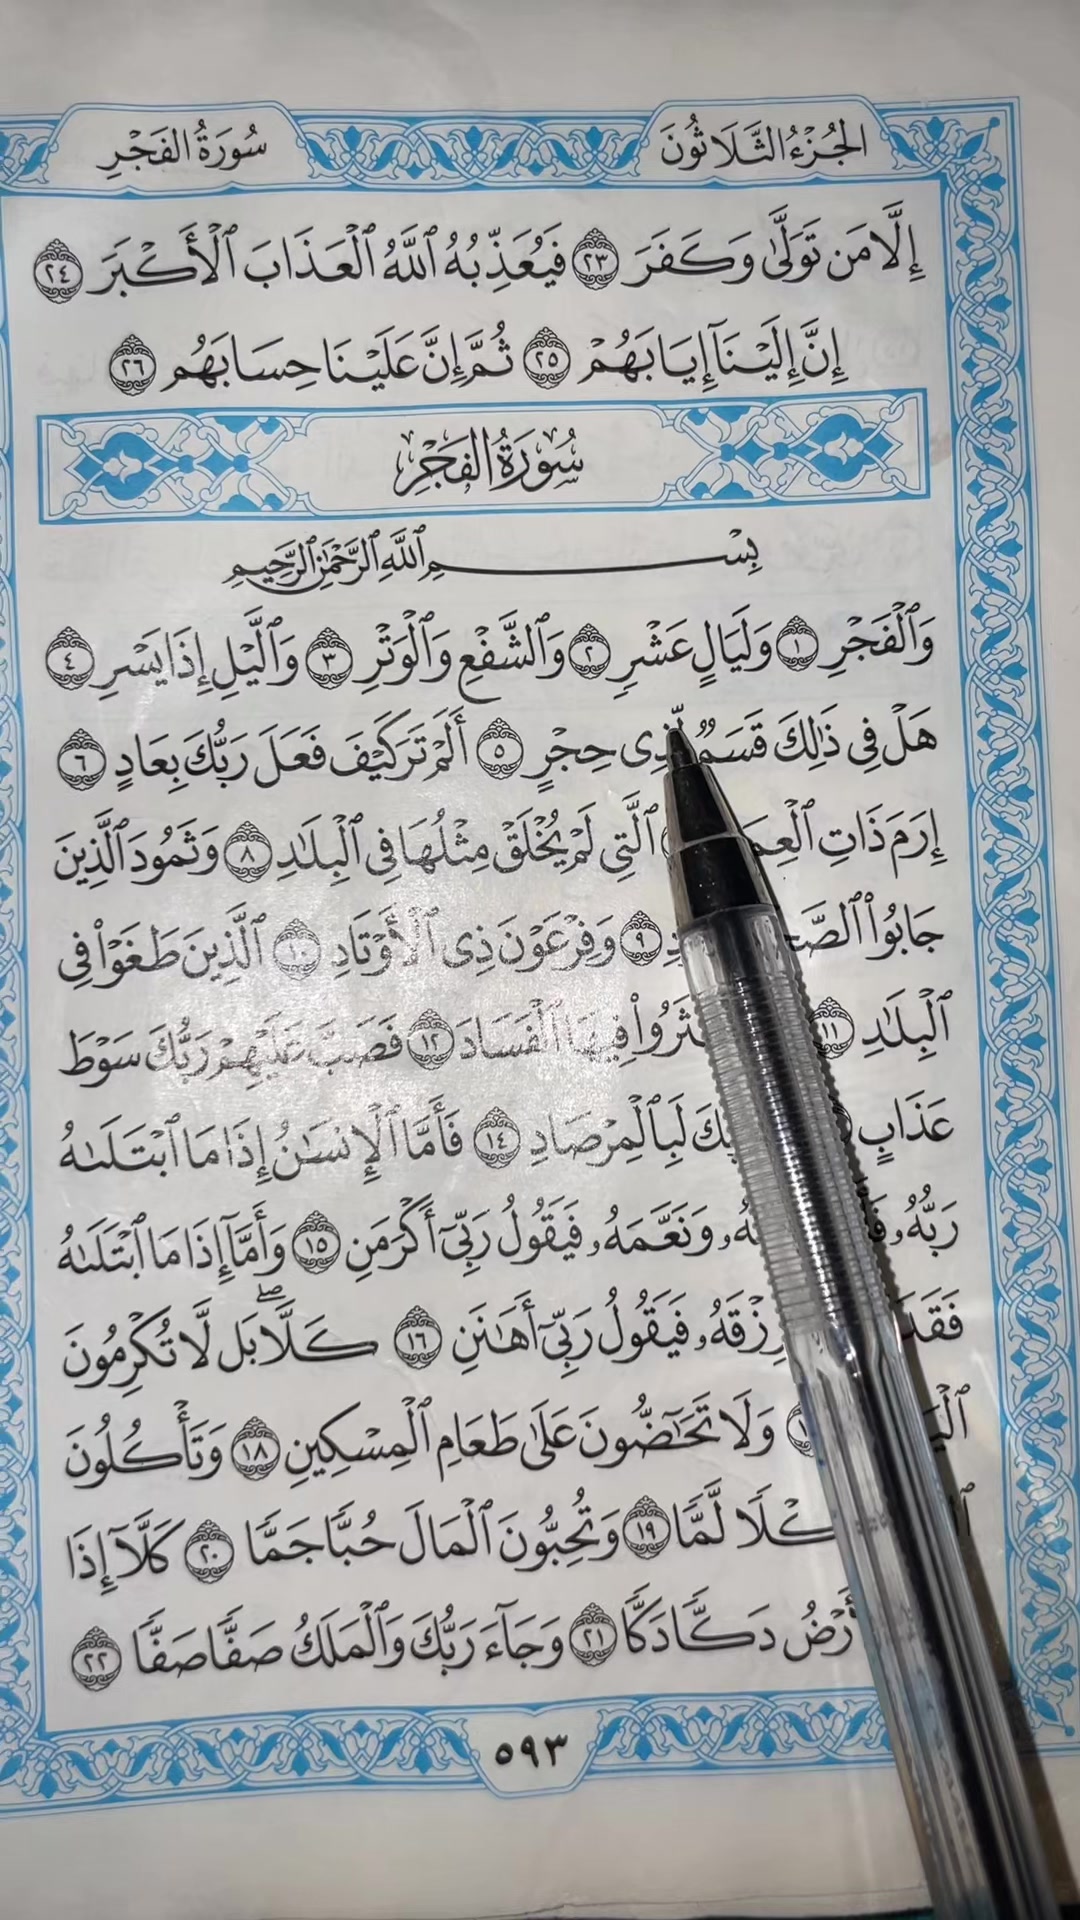 الجُزْءُ الثَّلَاثُونَ
سُورَةُ الفَجْرِ
إِلَّا مَن تَوَلَّىٰ وَكَفَرَ ٢٣ فَيُعَذِّبُهُ ٱللَّهُ ٱلْعَذَابَ ٱلْأَكْبَرَ ٢٤
إِنَّ إِلَيْنَآ إِيَابَهُمْ ٢٥ ثُمَّ إِنَّ عَلَيْنَا حِسَابَهُم ٢٦
سُورَةُ الفَجْرِ
بِسْمِ ٱللَّهِ ٱلرَّحْمَٰنِ ٱلرَّحِيمِ
وَٱلْفَجْرِ ١ وَلَيَالٍ عَشْرٍ ٢ وَٱلشَّفْعِ وَٱلْوَتْرِ ٣ وَٱلَّيْلِ إِذَا يَسْرِ ٤
هَلْ فِى ذَٰلِكَ قَسَمٌ لِّذِى حِجْرٍ ٥ أَلَمْ تَرَ كَيْفَ فَعَلَ رَبُّكَ بِعَادٍ ٦
إِرَمَ ذَاتِ ٱلَّتِى لَمْ يُخْلَقْ مِثْلُهَا فِى ٱلْبِلَٰدِ ٨ وَثَمُودَ ٱلَّذِينَ
جَابُوا۟ ٩ وَفِرْعَوْنَ ذِى ٱلْأَوْتَادِ ١٠ ٱلَّذِينَ طَغَوْا۟ فِى
ٱلْبِلَٰدِ ١١ فِيهَا ٱلْفَسَادَ ١٢ فَصَبَّ عَلَيْهِمْ رَبُّكَ سَوْطَ
عَذَابٍ لَبِٱلْمِرْصَادِ ١٤ فَأَمَّا ٱلْإِنسَٰنُ إِذَا مَا ٱبْتَلَىٰهُ
رَبُّهُۥ وَنَعَّمَهُۥ فَيَقُولُ رَبِّىٓ أَكْرَمَنِ ١٥ وَأَمَّآ إِذَا مَا ٱبْتَلَىٰهُ
رِزْقَهُۥ فَيَقُولُ رَبِّىٓ أَهَٰنَنِ ١٦ كَلَّا ۖ بَل لَّا تُكْرِمُونَ
وَلَا تَحَٰٓضُّونَ عَلَىٰ طَعَامِ ٱلْمِسْكِينِ ١٨ وَتَأْكُلُونَ
لَّمًّا ١٩ وَتُحِبُّونَ ٱلْمَالَ حُبًّا جَمًّا ٢٠ كَلَّآ إِذَا
دَكًّا دَكًّا ٢١ وَجَآءَ رَبُّكَ وَٱلْمَلَكُ صَفًّا صَفًّا ٢٢
٥٩٣